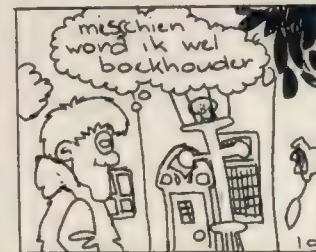 misschien
word ik wel
boekhouder